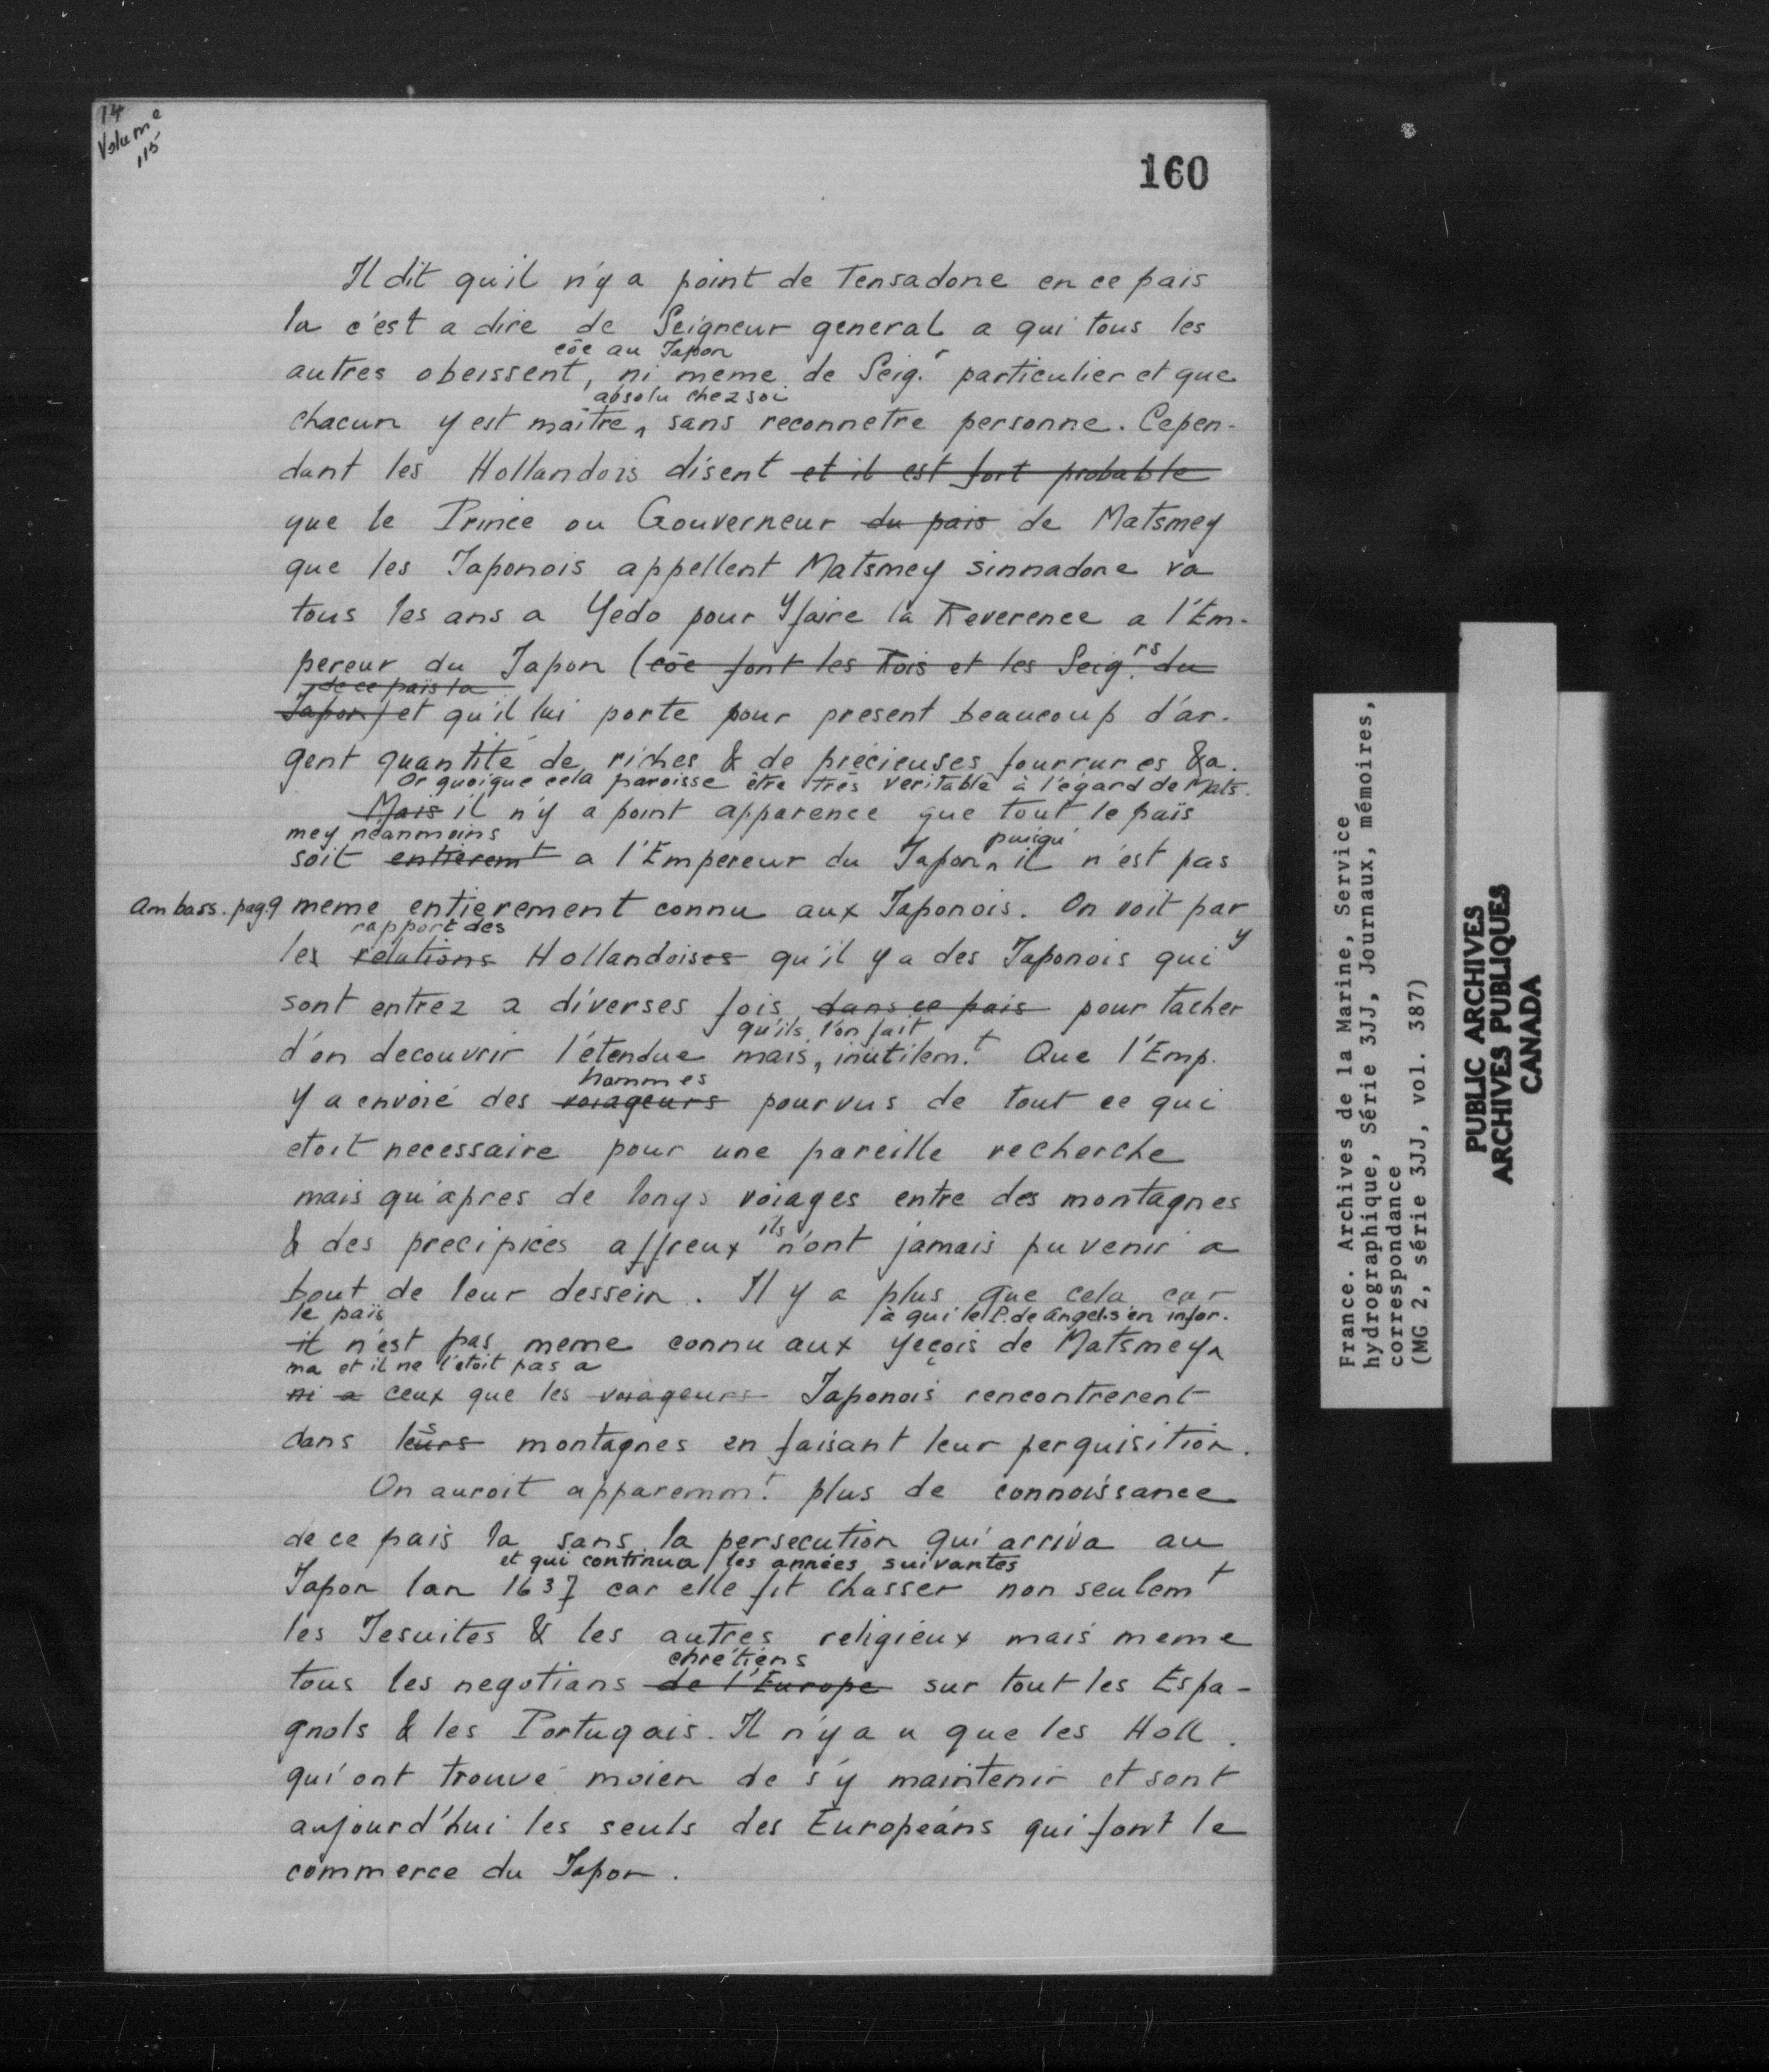 14
Volume
115
160
Il dit qu'il n'y a point de Tensadone en ce pais
la c'est a dire de Seigneur general a qui tous les
cōe au Japon
autres obeissent, ni meme de Seig.r particulier et que
absolu chez soi
chacun y est maître, sans reconnetre personne. Cepen-
dant les Hollandois disent et il est fort probable
que le Prince ou Gouverneur du pais de Matsmey
que les Japonois appellent Matsmey sinnadone va
tous les ans a Yedo pour y faire la Reverence a l'Em-
pereur du Japon (cōe font les Rois et les Seig.rs du
de ce païs la
Japon) et qu'il lui porte pour present beaucoup d'ar-
gent quantité de riches & de précieuses fourrures &a.
Or quoique cela paroisse être très veritable à l'égard de Mats-
Mais il n'y a point apparence que tout le païs
mey néanmoins puisqu'
soit entierem t a l'Empereur du Japon, il n'est pas
Ambass. pag. 9 meme entierement connu aux Japonois. On voit par
rapport des
les relations Hollandoises qu'il y a des Japonois qui y
sont entrez a diverses fois dans ce pais pour tacher
qu'ils l'on fait
d'en decouvrir l'étendue mais, inutilem.t Que l'Emp.
hommes
y a envoié des voiageurs pourvus de tout ce qui
etoit necessaire pour une pareille recherche
mais qu'apres de longs voiages entre des montagnes
& des precipices affreux ils n'ont jamais pu venir a
bout de leur dessein. Il y a plus que cela car
le païs à qui le P. de Angelis en infor-
il n'est pas meme connu aux yeçois de Matsmey
ma et il ne l'étoit pas a
ni a ceux que les voiageurs Japonois rencontrerent
dans leurs s montagnes en faisant leur perquisition.
On auroit apparemm.t plus de connoissance
de ce pais la sans la persecution qui arriva au
et qui continua les années suivantes
Japon lan 1637 car elle fit chasser non seulem t
les Jesuites & les autres religieux mais meme
chrétiens
tous les negotians de l'Europe sur tout les Espa-
gnols & les Portugais. Il n'y a u que les Holl.
qui ont trouvé moien de s'y maintenir et sont
aujourd'hui les seuls des Européans qui font le
commerce du Japon.
France. Archives de la Marine, Service
hydrographique, Série 3JJ, Journaux, mémoires,
correspondance
(MG 2, série 3JJ, vol. 387)
PUBLIC ARCHIVES
ARCHIVES PUBLIQUES
CANADA